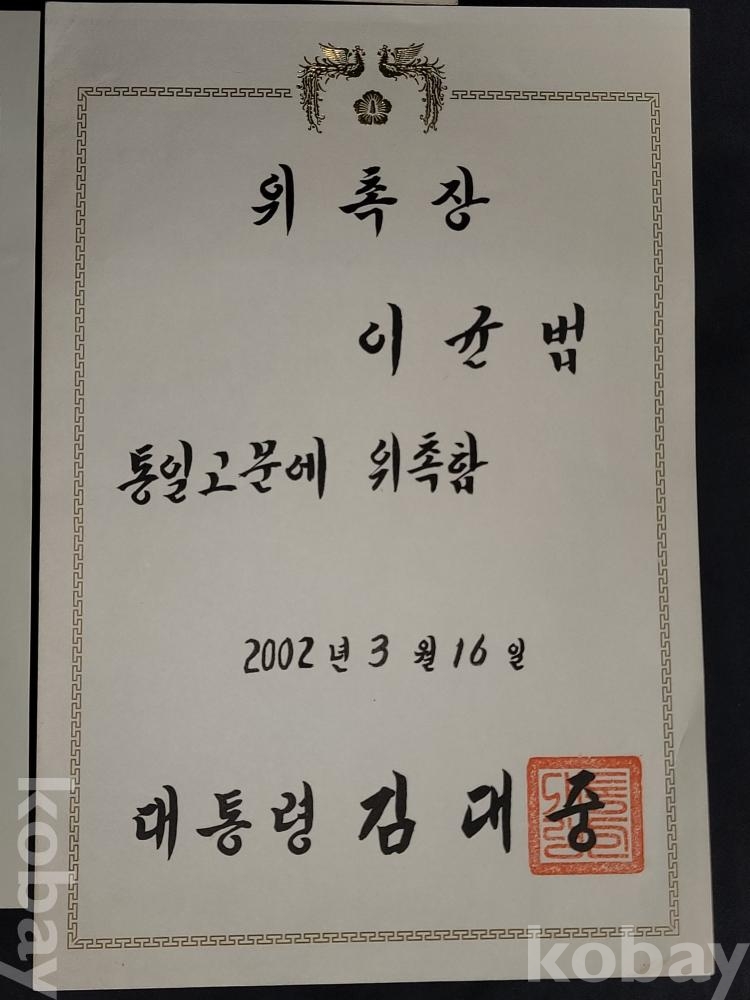 위촉장
이균범
통일고문에 위촉함
2002년 3월 16일
대통령 김대중
kobay
kobay